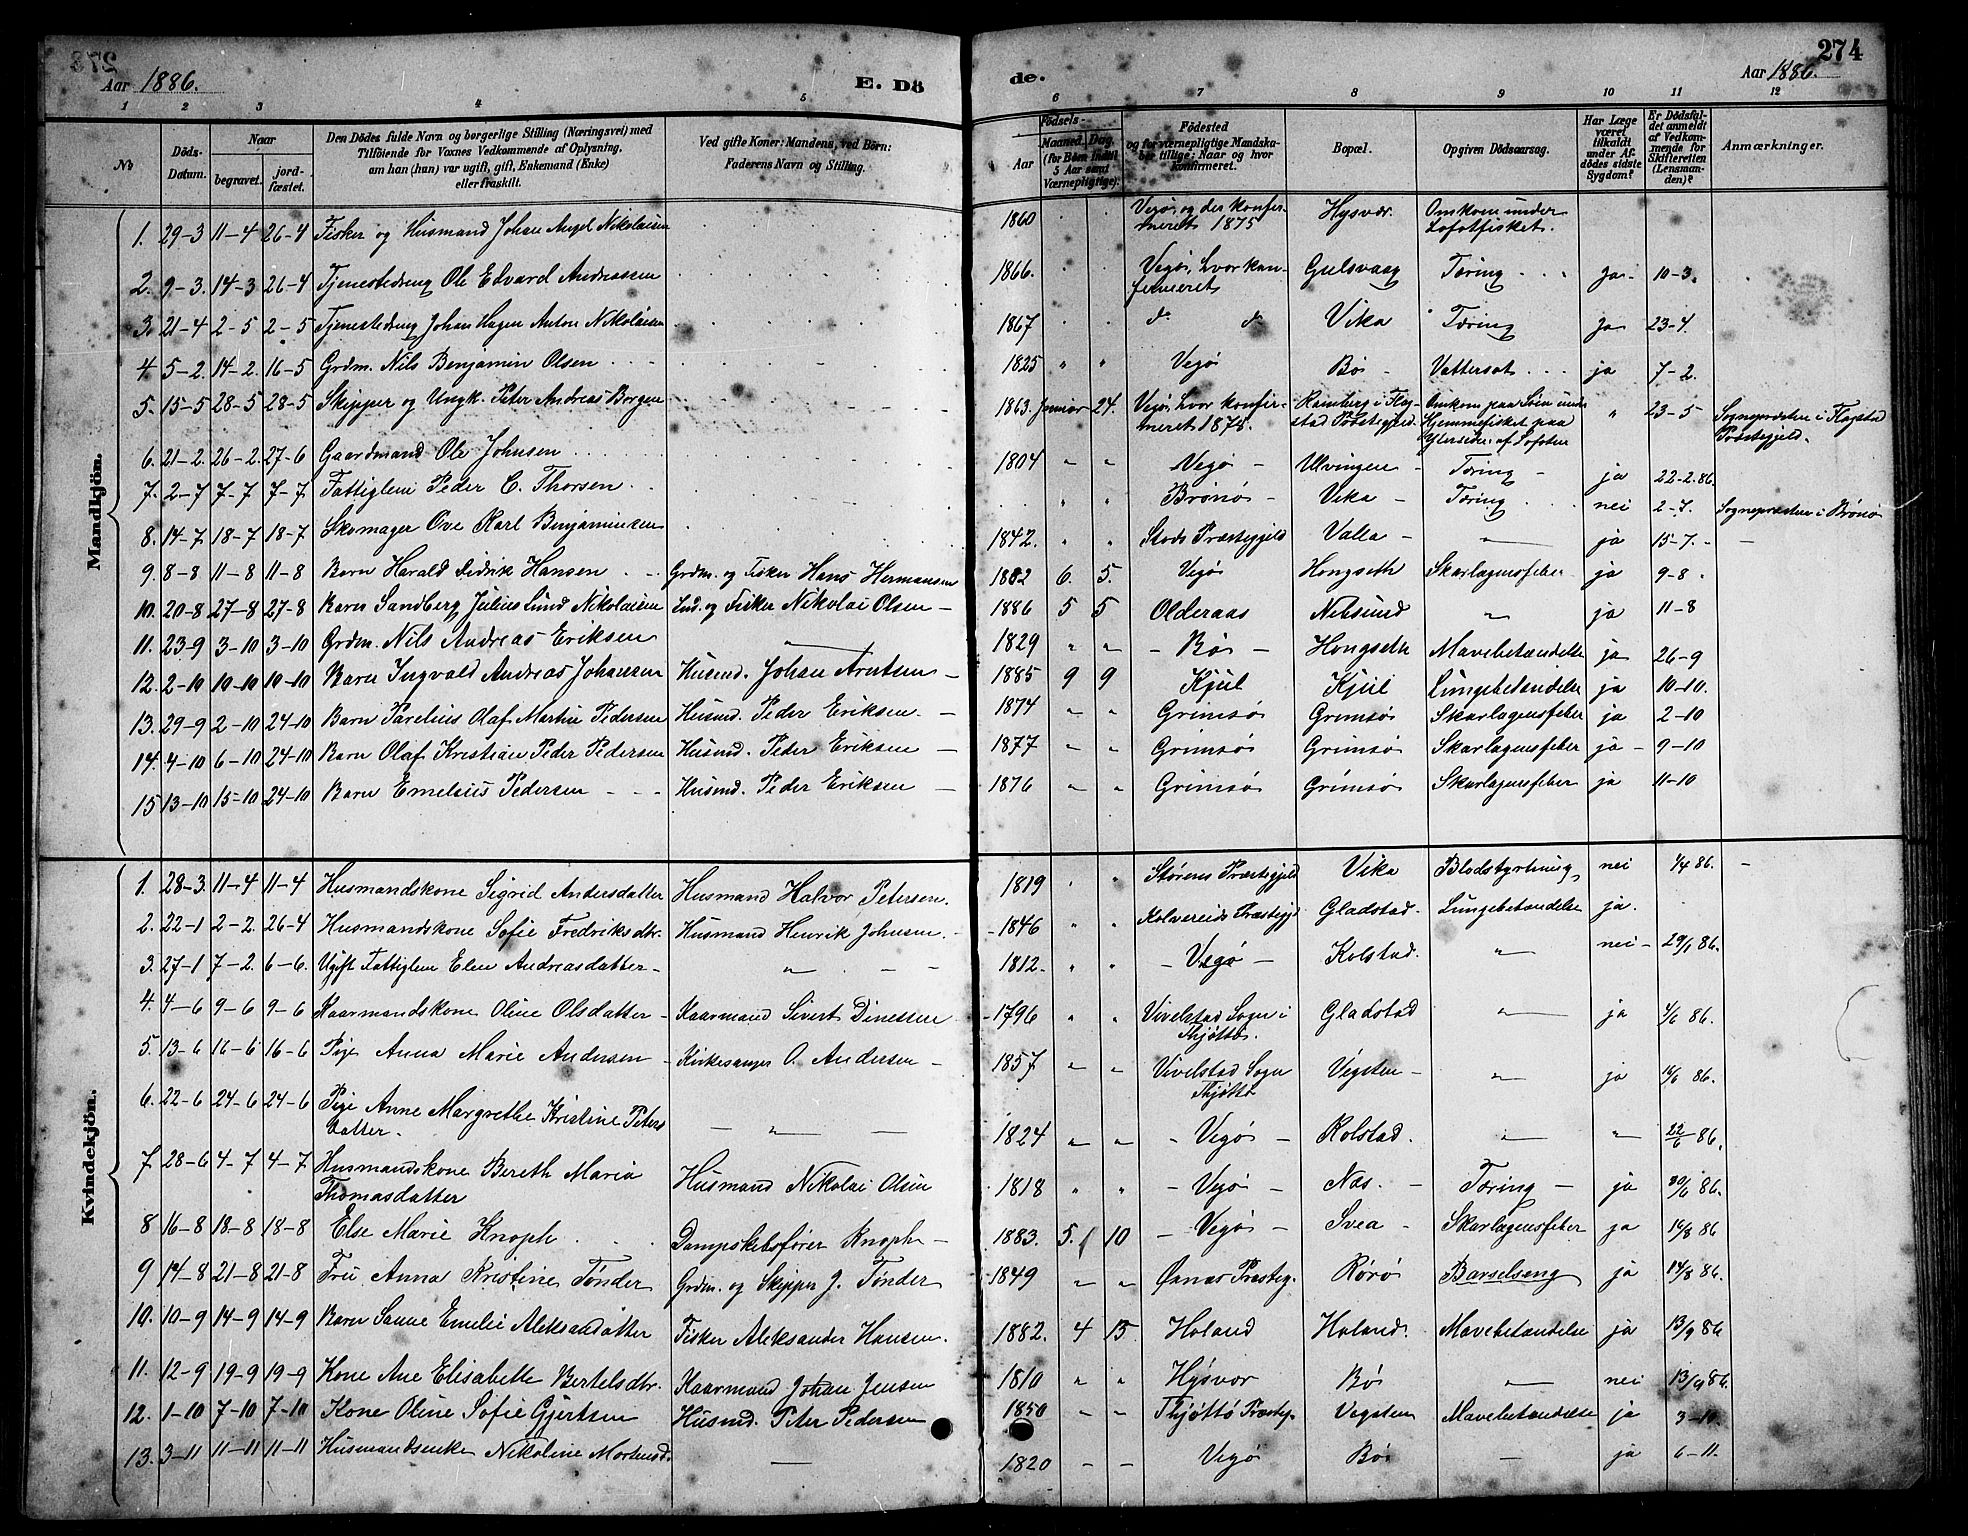 274
Aar 1886.
E. Dö
de.
Aar 1886.
1 2 3 4 5 6 7 8 9 10 11 12
No
Döds-Datum.
Naar
begravet.
jord-fæstet.
Den Dödes fulde Navn og borgerlige Stilling (Næringsvei) med
Tilföiende for Voxnes Vedkommende af Oplysning,
om han (hun) var ugift, gift, Enkemand (Enke)
eller fraskilt.
Ved gifte Koner: Mandens, ved Börn:
Faderens Navn og Stilling.
Födsels-
Aar
Maaned, Dag.
(for Börn indtil
5 Aar samt
Værnepligtige).
Födested
og for værnepligtige Mandska-
ber tillige: Naar og hvor
konfirmeret.
Bopæl.
Opgiven Dödsaarsag.
Har Læge
været
tilkaldt
under Af-
dödes sidste
Sygdom?
Er Dödsfal-
det anmeldt
af Vedkom-
mende for
Skifteretten
(Lensman-
den)?
Anmærkninger.
Mandkjön.
1. 29-3 11-4 26-4 Fisker og Husmand Johan Angel Nikolaisen 1860 Vegø, og der konfir-meret 1875 Hysvær. Omkom under Lofotfisket.
2. 9-3. 14-3 26-4 Tjenestedreng Ole Edvard Andreassen 1866. Vegø, hvor konfermeret Gulsvaag Tæring ja 10-3.
3. 21-4 2-5 2-5 Tjenestedreng Johan Hagen Anton Nikolaisen 1867 do do Vika Tæring ja 23-4.
4 5-2. 14-2. 16-5 Grdm. Nils Benjamin Olsen 1825 " " Vegø Bø Vattersot ja 7-2.
5. 15-5 28-5 28-5 Skipper og Ungk. Peter Andreas Borgen 1863. Januar 24. Vegø, hvor konfir-meret 1878. Ramberg i Flag-stad Præstegjeld. Omkom paa Søen under Hjemmefisket paa Ydersiden af Lofoten " 23-5 Sognepræsten i Flagstad Præstegjeld.
6. 21-2. 26-2. 27-6 Gaardmand Ole Johnsen 1804 " " Vegø Ulvingen Tæring ja 22-2.86.
7. 2-7 7-7 7-7 Fattiglem Peder C. Thorsen " " Brønø Vika Tæring nei 2-7. Sognepræsten i Brønø
8. 14-7 18-7 18-7 Skomager Ove Karl Benjaminsen 1842. " " Stods Præstegjeld Valla " ja 15-7.
9. 8-8 11-8 11-8 Barn Harald Didrik Hansen Grdm. og Fisker Hans Hermansen 1882 6. 5. Vegø Hongseth Skarlagensfeber ja 9-8
10. 20-8 27-8 27-8 Barn Sandberg Julius Lund Nikolaisen Ind. og Fisker Nikolai Olsen 1886 5 5 Olderaas Nilsund " ja 11-8
11. 23-9 3-10 3-10 Grdm. Nils Andreas Eriksen " 1829 " " Bø Hongseth Mavebetændelse ja 26-9
12. 2-10 10-10 10-10 Barn Ingvald Andreas Johansen Husmd. Johan Arntsen 1885 9 9 Kjul Kjul Lungebetændelse ja 10-10.
13. 29-9 2-10 24-10 Barn Parelius Olaf Martin Pedersen Husmd. Peder Eriksen 1874 " " Grimsø Grimsø Skarlagensfeber ja 2-10
14. 4-10 6-10 24-10 Barn Olaf Kristian Peder Pedersen Husmd. Peder Eriksen 1877 " " Grimsø Grimsø Skarlagensfeber ja 9-10
15 13-10 15-10 24-10 Barn Emelius Pedersen Husmd. Peder Eriksen 1876 " " Grimsø Grimsø Skarlagensfeber ja 11-10
Kvindekjön.
1. 28-3. 11-4 11-4 Husmandskone Sigrid Andersdatter Husmand Halvor Petersen. 1819 " " Størens Præstegjeld Vika Blodstyrtning nei 1/4 86.
2. 22-1 2-2. 26-4 Husmandskone Sofie Fredriksdtr. Husmand Henrik Johnsen. 1846 " " Kolvereids Præstegjd Gladstad. Lungebetændelse ja.
3. 27-1 7-2. 6-6. Ugift Fattiglem Elen Andreasdatter " 1812. " " Vegø Kolstad. " nei 29/1 86.
4. 4-6 9-6 9-6 Kaarmandskone Oline Olsdatter Kaarmand Sivert Dinessen 1796 " " Vivelstad Sogn i Thjøttø. Gladstad " ja 4/6 86.
5. 13-6 16-6 16-6 Pige Anna Marie Andersen Kirkesanger O. Andersen 1857 " " Vivelstad Sogn Thjøttø Vegsten " ja 14/6 86.
6. 22-6 24-6 24-6 Pige Anne Margrethe Kristine Peters datter. " 1824 " " Vegø Kolstad. " " 22/6 86.
7 28-6 4-7 4-7 Husmandskone Bereth Maria Thomasdatter Husmand Nikolai Olsen 1818 " " Vegø Næs. Tæring ja 30/6 86.
8 16-8 18-8 18-8 Else Marie Knoph Dampskibsfører Knoph 1883. 5. 10 Vegø Svea Skarlagensfeber ja 16/8 86
9 14-8 21-8 21-8 Fru Anna Kristine Tønder Grdm. og Skipper J. Tønder 1849 " " Øsnæs Præsteg. Rørø Barselseng ja 14/8 86.
10. 10-9 14-9 14-9 Barn Sanne Emelie Aleksandatter Fisker Aleksander Hansen. 1882. 4 15 Holand Holand. Mavebetændelse ja 13/9 86
11. 12-9 19-9 19-9 Kone Ane Elisabeth Bertelsdtr. Kaarmand Johan Jensen 1810 " " Hysvær Bø " nei 13/9 86.
12. 1-10 7-10 7-10 Kone Oline Sofie Gjertsen Husmd. Peter Pedersen 1850 " " Thjøttø Præsteg. Vegsten Mavebetændelse ja 3-10.
13. 3-11 11-11 11-11 Husmandsenke Nikoline Mortensd. 1820 Vegø Bø ja 6-11.